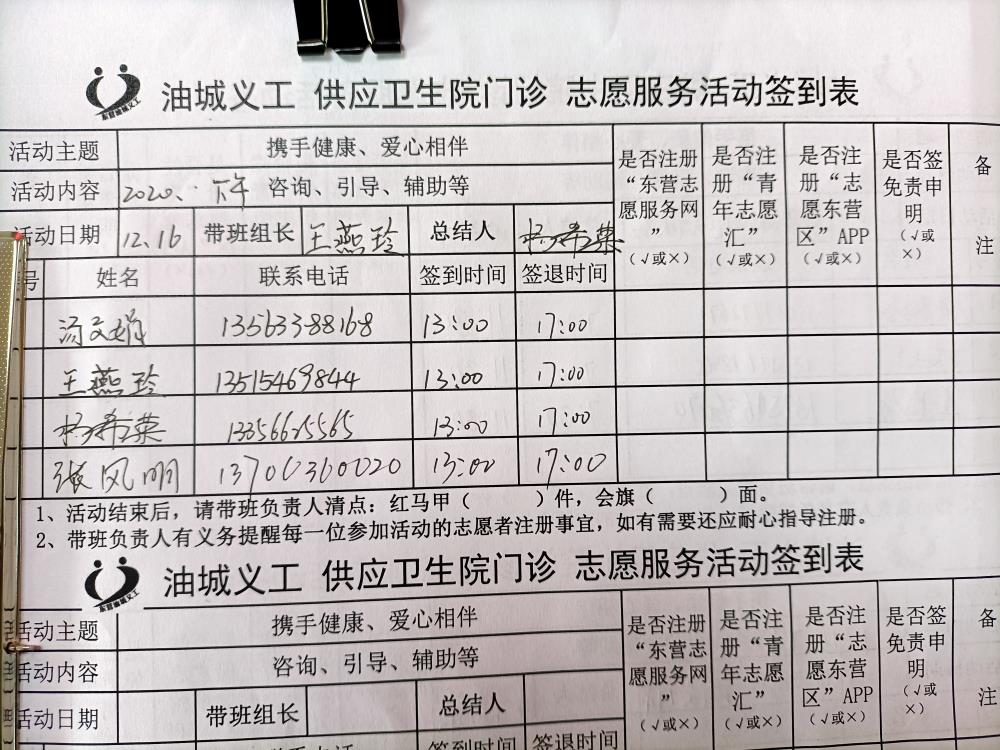 油城义工 供应卫生院门诊 志愿服务活动签到表
活动主题 携手健康、爱心相伴 是否注册“东营志愿服务网”(√或×) 是否注册“青年志愿汇”(√或×) 是否注册“志愿东营区”APP(√或×) 是否签免责申明(√或×) 备注
活动内容 2020、下午 咨询、引导、辅助等
活动日期 12.16 带班组长 王燕玲 总结人 杨希荣
号 姓名 联系电话 签到时间 签退时间
汤文娟 13563388168 13:00 17:00
王燕玲 13515469844 13:00 17:00
杨希荣 13356625565 13:00 17:00
张凤明 13706360020 13:00 17:00
1、活动结束后，请带班负责人清点：红马甲（ ）件，会旗（ ）面。
2、带班负责人有义务提醒每一位参加活动的志愿者注册事宜，如有需要还应耐心指导注册。
油城义工 供应卫生院门诊 志愿服务活动签到表
活动主题 携手健康、爱心相伴 是否注册“东营志愿服务网”(√或×) 是否注册“青年志愿汇”(√或×) 是否注册“志愿东营区”APP(√或×) 是否签免责申明(√或×) 备注
活动内容 咨询、引导、辅助等
活动日期 带班组长 总结人
签到时间 签退时间